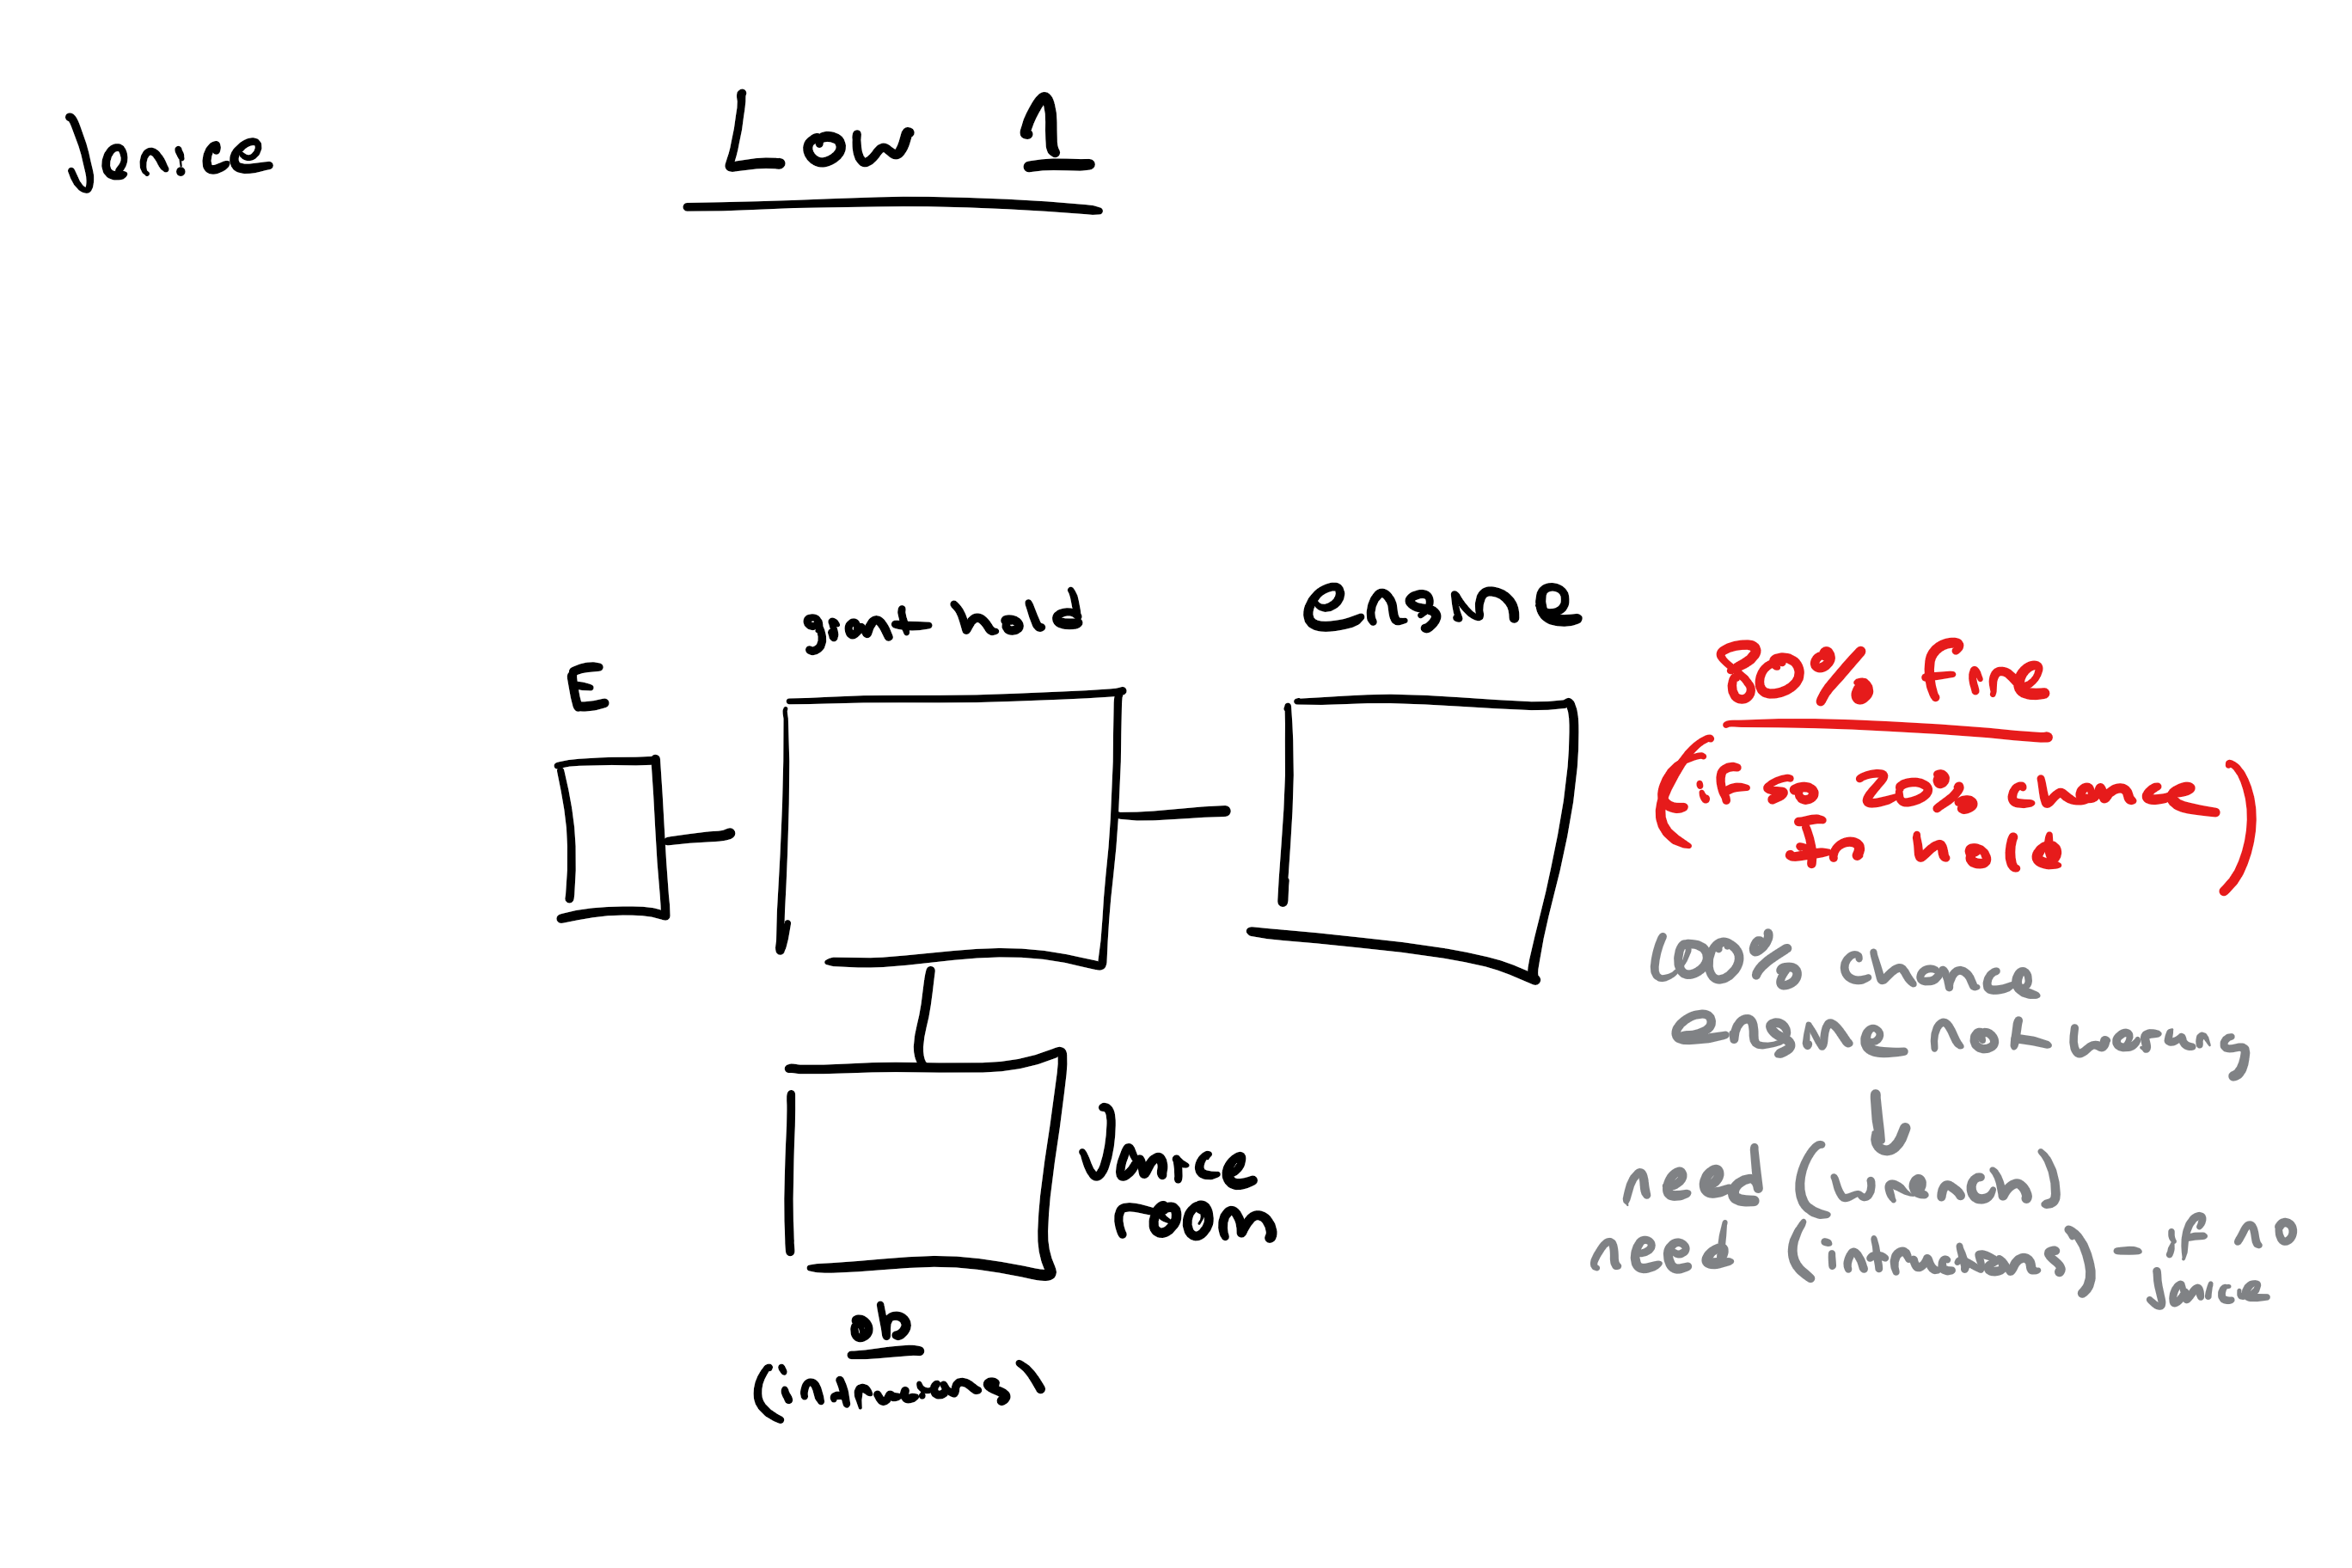 Janice
Low 1
giant hold
engine
E
80% fire
(if so 20% chance
In hold)
100% chance
engine not working
need (wrench)
need (instructions) - if no
Janice
Janice
room
ob
(instructions)